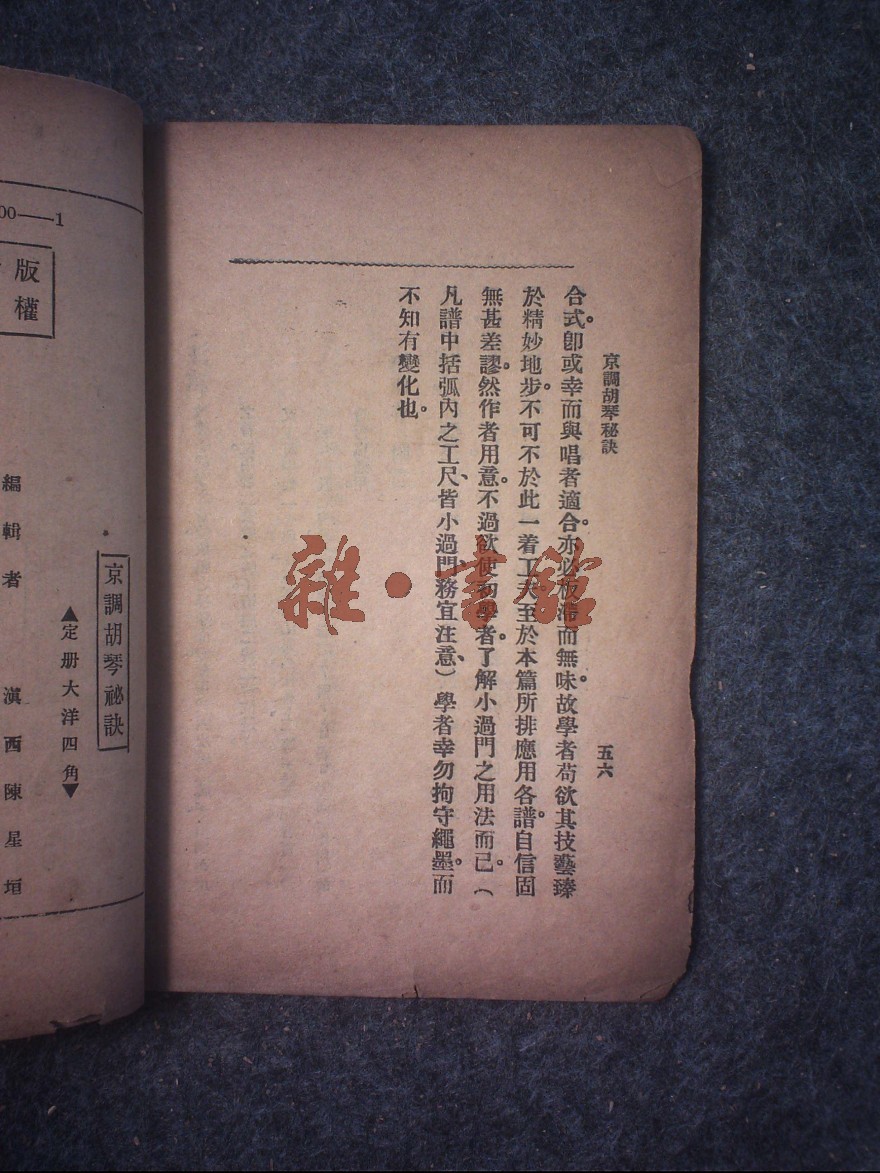 京調胡琴秘訣
五六
合式。卽或幸而與唱者適合。亦必板滯而無味。故學者苟欲其技藝臻
於精妙地步。不可不於此一着工夫。至於本篇所排應用各譜。自信固
無甚差謬。然作者用意。不過欲使初學者。了解小過門之用法而已。（
凡譜中括弧內之工尺、皆小過門、務宜注意、）學者幸勿拘守繩墨。而
不知有變化也。
雜·書館
00——1
版
權
京調胡琴祕訣
▲定册大洋四角▼
編輯者 滇西陳星垣